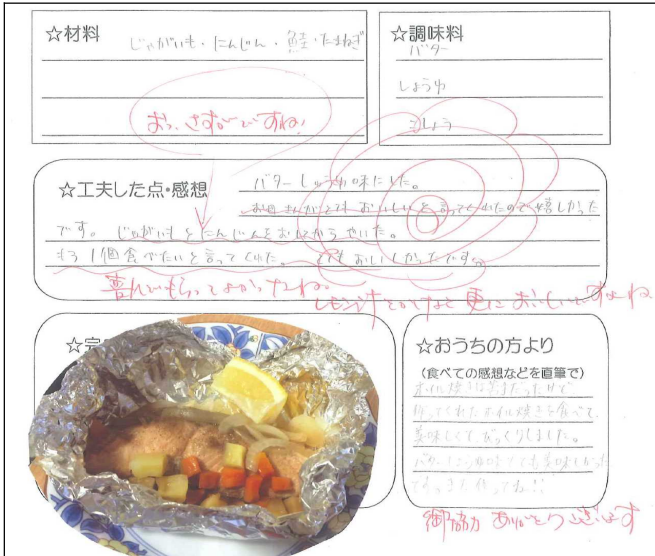 ☆材料
じゃがいも・にんじん・鮭・たまねぎ
おっ、さすがですね!
☆調味料
バター
しょうゆ
こしょう
☆工夫した点・感想
バターしょうゆ味にした。
お母さんがとてもおいしいと言ってくれたので嬉しかった
です。じゃがいもとにんじんを
もう1個食べたいと言ってくれた。とてもおいしかったです。
喜んでもらってよかったね。
レモン汁とかすると更においしいですよね
☆完
☆おうちの方より
(食べての感想などを直筆で)
ホイル焼きは苦手だったけど
作ってくれたホイル焼きを食べて、
美味しくてびっくりしました。
バターしょうゆ味とても美味しかった
です。また作ってね!!
御協力ありがとうございます